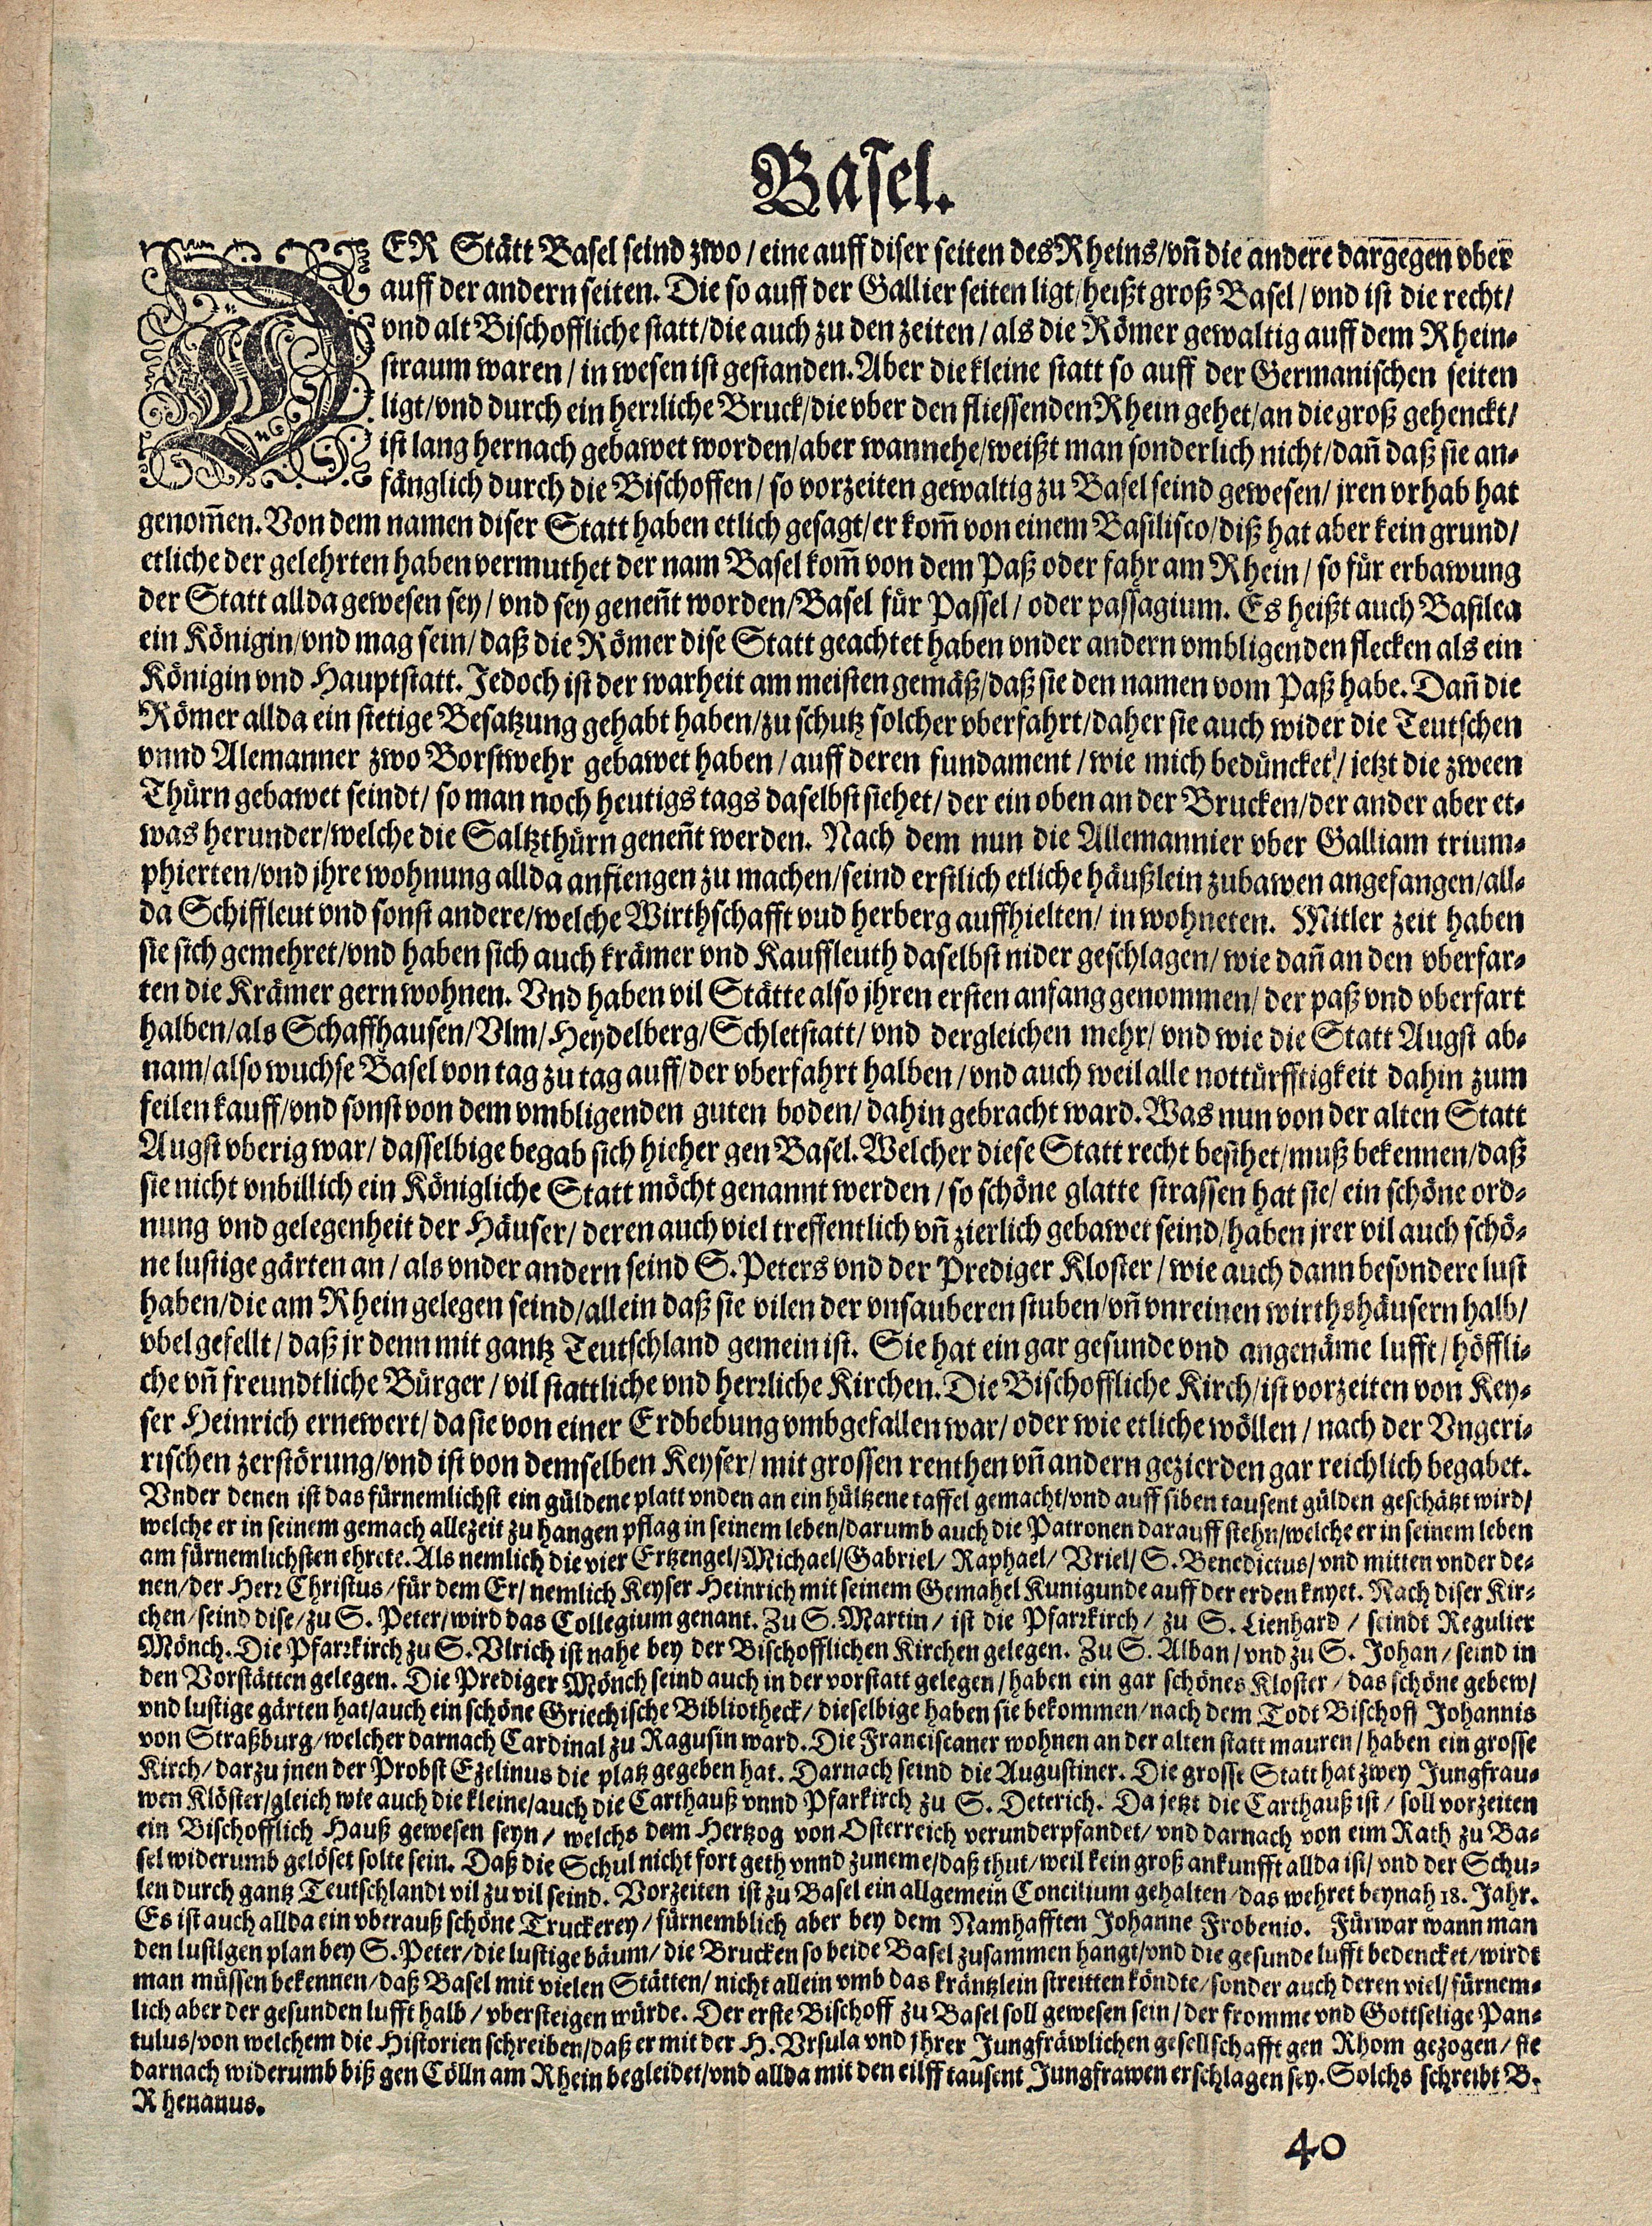 Basel.
DER Stätt Basel seind zwo/ eine auff diser seiten des Rheins/ vn̄ die andere dargegen vber
auff der andern seiten. Die so auff der Gallier seiten ligt/ heißt groß Basel/ vnd ist die recht/
vnd alt Bischoffliche statt/ die auch zu den zeiten/ als die Römer gewaltig auff dem Rhein-
straum waren/ in wesen ist gestanden. Aber die kleine statt so auff der Germanischen seiten
ligt/ vnd durch ein herrliche Bruck/ die vber den fliessenden Rhein gehet/ an die groß gehenckt/
ist lang hernach gebawet worden/ aber wannehe/ weißt man sonderlich nicht/ dañ daß sie an-
fänglich durch die Bischoffen/ so vorzeiten gewaltig zu Basel seind gewesen/ jren vrhab hat
genom̄en. Von dem namen diser Statt haben etlich gesagt/ er kom̄ von einem Basilisco/ diß hat aber kein grund/
etliche der gelehrten haben vermuthet der nam Basel kom̄ von dem Paß oder fahr am Rhein/ so für erbawung
der Statt allda gewesen sey/ vnd sey geneñt worden/ Basel für Passel/ oder passagium. Es heißt auch Basilea
ein Königin/ vnd mag sein/ daß die Römer dise Statt geachtet haben vnder andern vmbligenden flecken als ein
Königin vnd Hauptstatt. Jedoch ist der warheit am meisten gemäß/ daß sie den namen vom Paß habe. Dañ die
Römer allda ein stetige Besatzung gehabt haben/ zu schutz solcher vberfahrt/ daher sie auch wider die Teutschen
vnnd Alemanner zwo Borstwehr gebawet haben/ auff deren fundament/ wie mich bedüncket/ jetzt die zween
Thürn gebawet seindt/ so man noch heutigs tags daselbst siehet/ der ein oben an der Brucken/ der ander aber et-
was herunder/ welche die Saltzthürn geneñt werden. Nach dem nun die Allemannier vber Galliam trium-
phierten/ vnd jhre wohnung allda anfiengen zu machen/ seind erstlich etliche häußlein zubawen angefangen/ all-
da Schiffleut vnd sonst andere/ welche Wirthschafft vud herberg auffhielten/ in wohneten. Mitler zeit haben
sie sich gemehret/ vnd haben sich auch krämer vnd Kauffleuth daselbst nider geschlagen/ wie dañ an den vberfar-
ten die Krämer gern wohnen. Vnd haben vil Stätte also jhren ersten anfang genommen/ der paß vnd vberfart
halben/ als Schaffhausen/ Vlm/ Heydelberg/ Schletstatt/ vnd dergleichen mehr/ vnd wie die Statt Augst ab-
nam/ also wuchse Basel von tag zu tag auff/ der vberfahrt halben/ vnd auch weil alle nottürfftigkeit dahin zum
feilen kauff/ vnd sonst von dem vmbligenden guten boden/ dahin gebracht ward. Was nun von der alten Statt
Augst vberig war/ dasselbige begab sich hieher gen Basel. Welcher diese Statt recht besihet/ muß bekennen/ daß
sie nicht vnbillich ein Königliche Statt möcht genannt werden/ so schöne glatte strassen hat sie/ ein schöne ord-
nung vnd gelegenheit der Häuser/ deren auch viel treffentlich vn̄ zierlich gebawet seind/ haben jrer vil auch schö-
ne lustige gärten an/ als vnder andern seind S. Peters vnd der Prediger Kloster/ wie auch dann besondere lust
haben/ die am Rhein gelegen seind/ allein daß sie vilen der vnsauberen stuben/ vn̄ vnreinen wirthshäusern halb/
vbel gefellt/ daß jr denn mit gantz Teutschland gemein ist. Sie hat ein gar gesunde vnd angenäme lufft/ höffli-
che vn̄ freundtliche Bürger/ vil stattliche vnd herrliche Kirchen. Die Bischoffliche Kirch/ ist vorzeiten von Key-
ser Heinrich ernewert/ da sie von einer Erdbebung vmbgefallen war/ oder wie etliche wöllen/ nach der Vngeri-
rischen zerstörung/ vnd ist von demselben Keyser/ mit grossen renthen vn̄ andern gezierden gar reichlich begabet.
Vnder denen ist das fürnemlichst ein güldene platt vnden an ein hültzene taffel gemacht/ vnd auff siben tausent gülden geschätzt wird/
welche er in seinem gemach allezeit zu hangen pflag in seinem leben/ darumb auch die Patronen darauff stehn/ welche er in seinem leben
am fürnemlichsten ehrete. Als nemlich die vier Ertzengel/ Michael/ Gabriel/ Raphael/ Vriel/ S. Benedictus/ vnd mitten vnder de-
nen/ der Herr Christus/ für dem Er/ nemlich Keyser Heinrich mit seinem Gemahel Kunigunde auff der erden knyet. Nach diser Kir-
chen/ seind dise/ zu S. Peter/ wird das Collegium genant. Zu S. Martin/ ist die Pfarrkirch/ zu S. Lienhard/ seindt Regulier
Mönch. Die Pfarrkirch zu S. Vlrich ist nahe bey der Bischofflichen Kirchen gelegen. Zu S. Alban/ vnd zu S. Johan/ seind in
den Vorstätten gelegen. Die Prediger Mönch seind auch in der vorstatt gelegen/ haben ein gar schönes Kloster/ das schöne gebew/
vnd lustige gärten hat/ auch ein schöne Griechische Bibliotheck/ dieselbige haben sie bekommen/ nach dem Todt Bischoff Johannis
von Straßburg/ welcher darnach Cardinal zu Ragusin ward. Die Franciscaner wohnen an der alten statt mauren/ haben ein grosse
Kirch/ darzu jnen der Probst Ezelinus die platz gegeben hat. Darnach seind die Augustiner. Die grosse Statt hat zwey Jungfrau-
wen Klöster/ gleich wie auch die kleine/ auch die Carthauß vnnd Pfarkirch zu S. Deterich. Da jetzt die Carthauß ist/ soll vorzeiten
ein Bischofflich Hauß gewesen seyn/ welchs dem Hertzog von Osterreich verunderpfandet/ vnd darnach von eim Rath zu Ba-
sel widerumb gelöset solte sein. Daß die Schul nicht fort geth vnnd zuneme/ daß thut/ weil kein groß ankunfft allda ist/ vnd der Schu-
len durch gantz Teutschlandt vil zu vil seind. Vorzeiten ist zu Basel ein allgemein Concilium gehalten/ das wehret beynah 18. Jahr.
Es ist auch allda ein vberauß schöne Truckerey/ fürnemblich aber bey dem Namhafften Johanne Frobenio. Fürwar wann man
den lustigen plan bey S. Peter/ die lustige bäum/ die Brucken so beide Basel zusammen hangt/ vnd die gesunde lufft bedencket/ wirdt
man müssen bekennen/ daß Basel mit vielen Stätten/ nicht allein vmb das kräntzlein streitten köndte/ sonder auch deren viel/ fürnem-
lich aber der gesunden lufft halb/ vbersteigen würde. Der erste Bischoff zu Basel soll gewesen sein/ der fromme vnd Gottselige Pan-
tulus/ von welchem die Historien schreiben/ daß er mit der H. Vrsula vnd jhrer Jungfräwlichen gesellschafft gen Rhom gezogen/ sie
darnach widerumb biß gen Cölln am Rhein begleidet/ vnd allda mit den eilff tausent Jungfrawen erschlagen sey. Solchs schreibt B.
Rhenanus.
40